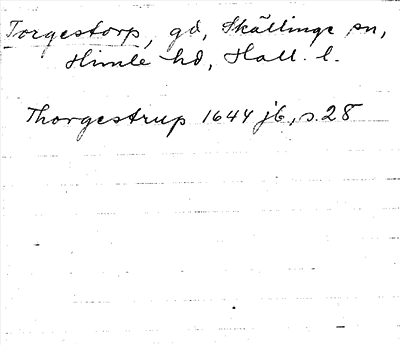 Torgestorp, gd, Skällinge sn,
Himle hd, Hall. l.
Thorgestrup 1644 jb, s. 28